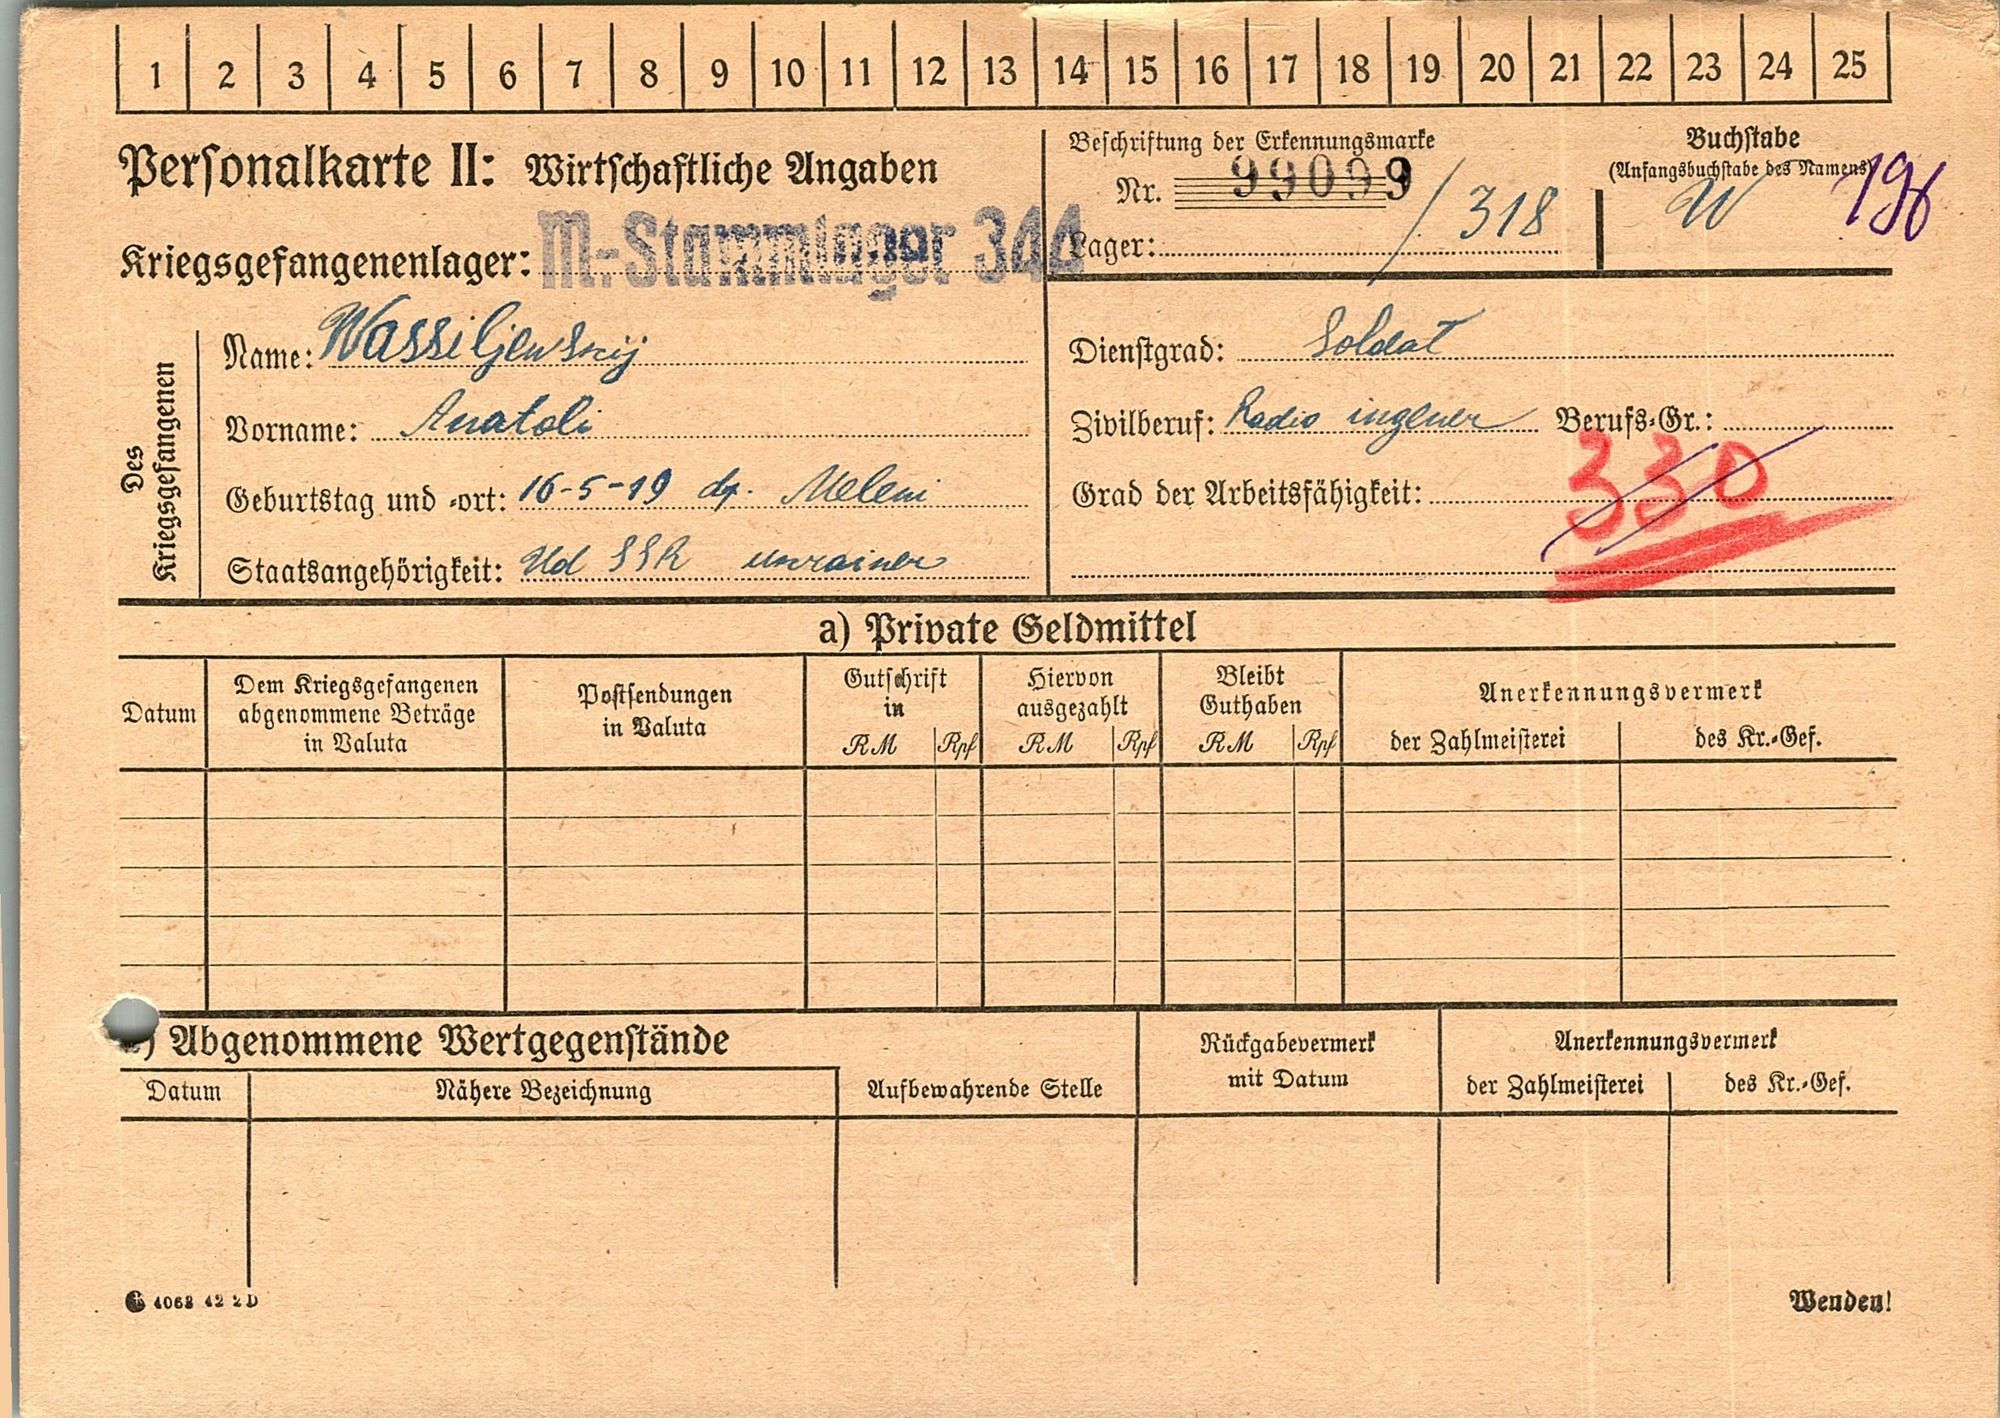 1 2 3 4 5 6 7 8 9 10 11 12 13 14 15 16 17 18 19 20 21 22 23 24 25
Personalkarte II: Wirtschaftliche Angaben
Kriegsgefangenenlager: M.-Stammlager 344
Beschriftung der Erkennungsmarke
Nr. 99099
Lager: / 318
Buchstabe
(Anfangsbuchstabe des Namens)
W 196
Des Kriegsgefangenen
Name: Wassiljewskij
Vorname: Anatoli
Geburtstag und -ort: 16-5-19 Meleni
Staatsangehörigkeit: Ud SSR
Dienstgrad: Soldat
Zivilberuf: Radio ingener Berufs-Gr.:
330
Grad der Arbeitsfähigkeit:
a) Private Geldmittel
Datum
Dem Kriegsgefangenen
abgenommene Beträge
in Valuta
Postsendungen
in Valuta
Gutschrift
in
RM Rpf
Hiervon
ausgezahlt
RM Rpf
Bleibt
Guthaben
RM Rpf
Anerkennungsvermerk
der Zahlmeisterei des Kr.-Gef.
) Abgenommene Wertgegenstände
Datum Nähere Bezeichnung
Aufbewahrende Stelle
Rückgabevermerk
mit Datum
Anerkennungsvermerk
der Zahlmeisterei des Kr.-Gef.
4063 42 2 D
Wenden!